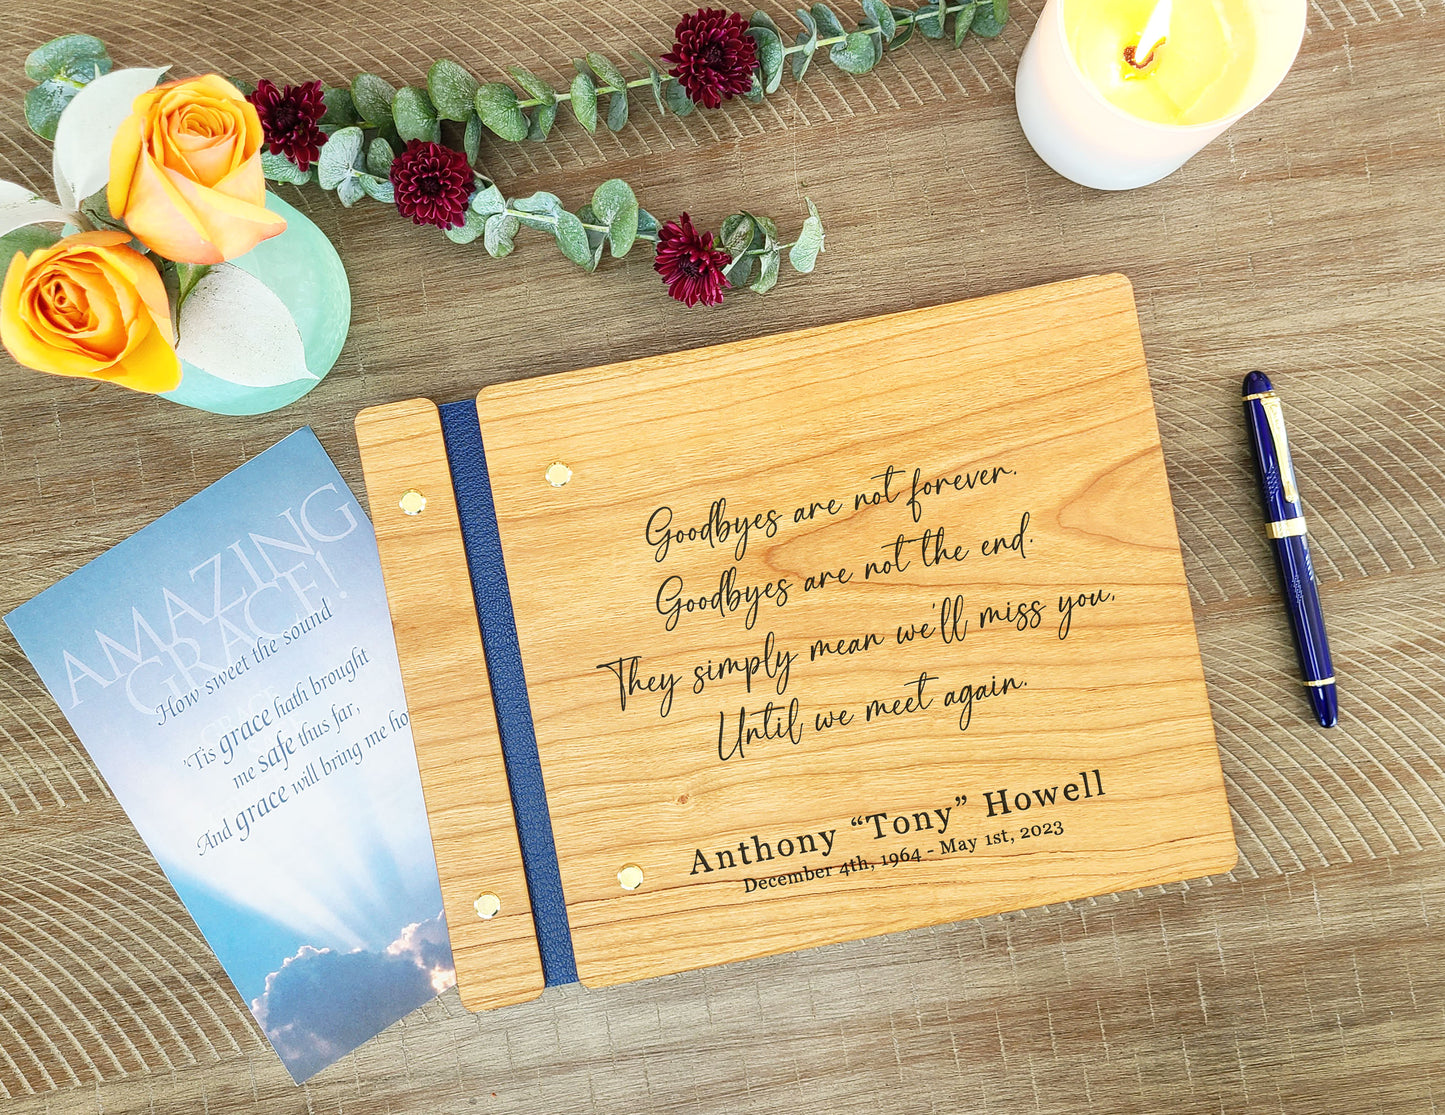 AMAZING
GRACE!
How sweet the sound
'Tis grace hath brought
me safe thus far,
And grace will bring me ho
Goodbyes are not forever.
Goodbyes are not the end.
They simply mean we'll miss you,
Until we meet again.
Anthony “Tony” Howell
December 4th, 1964 - May 1st, 2023